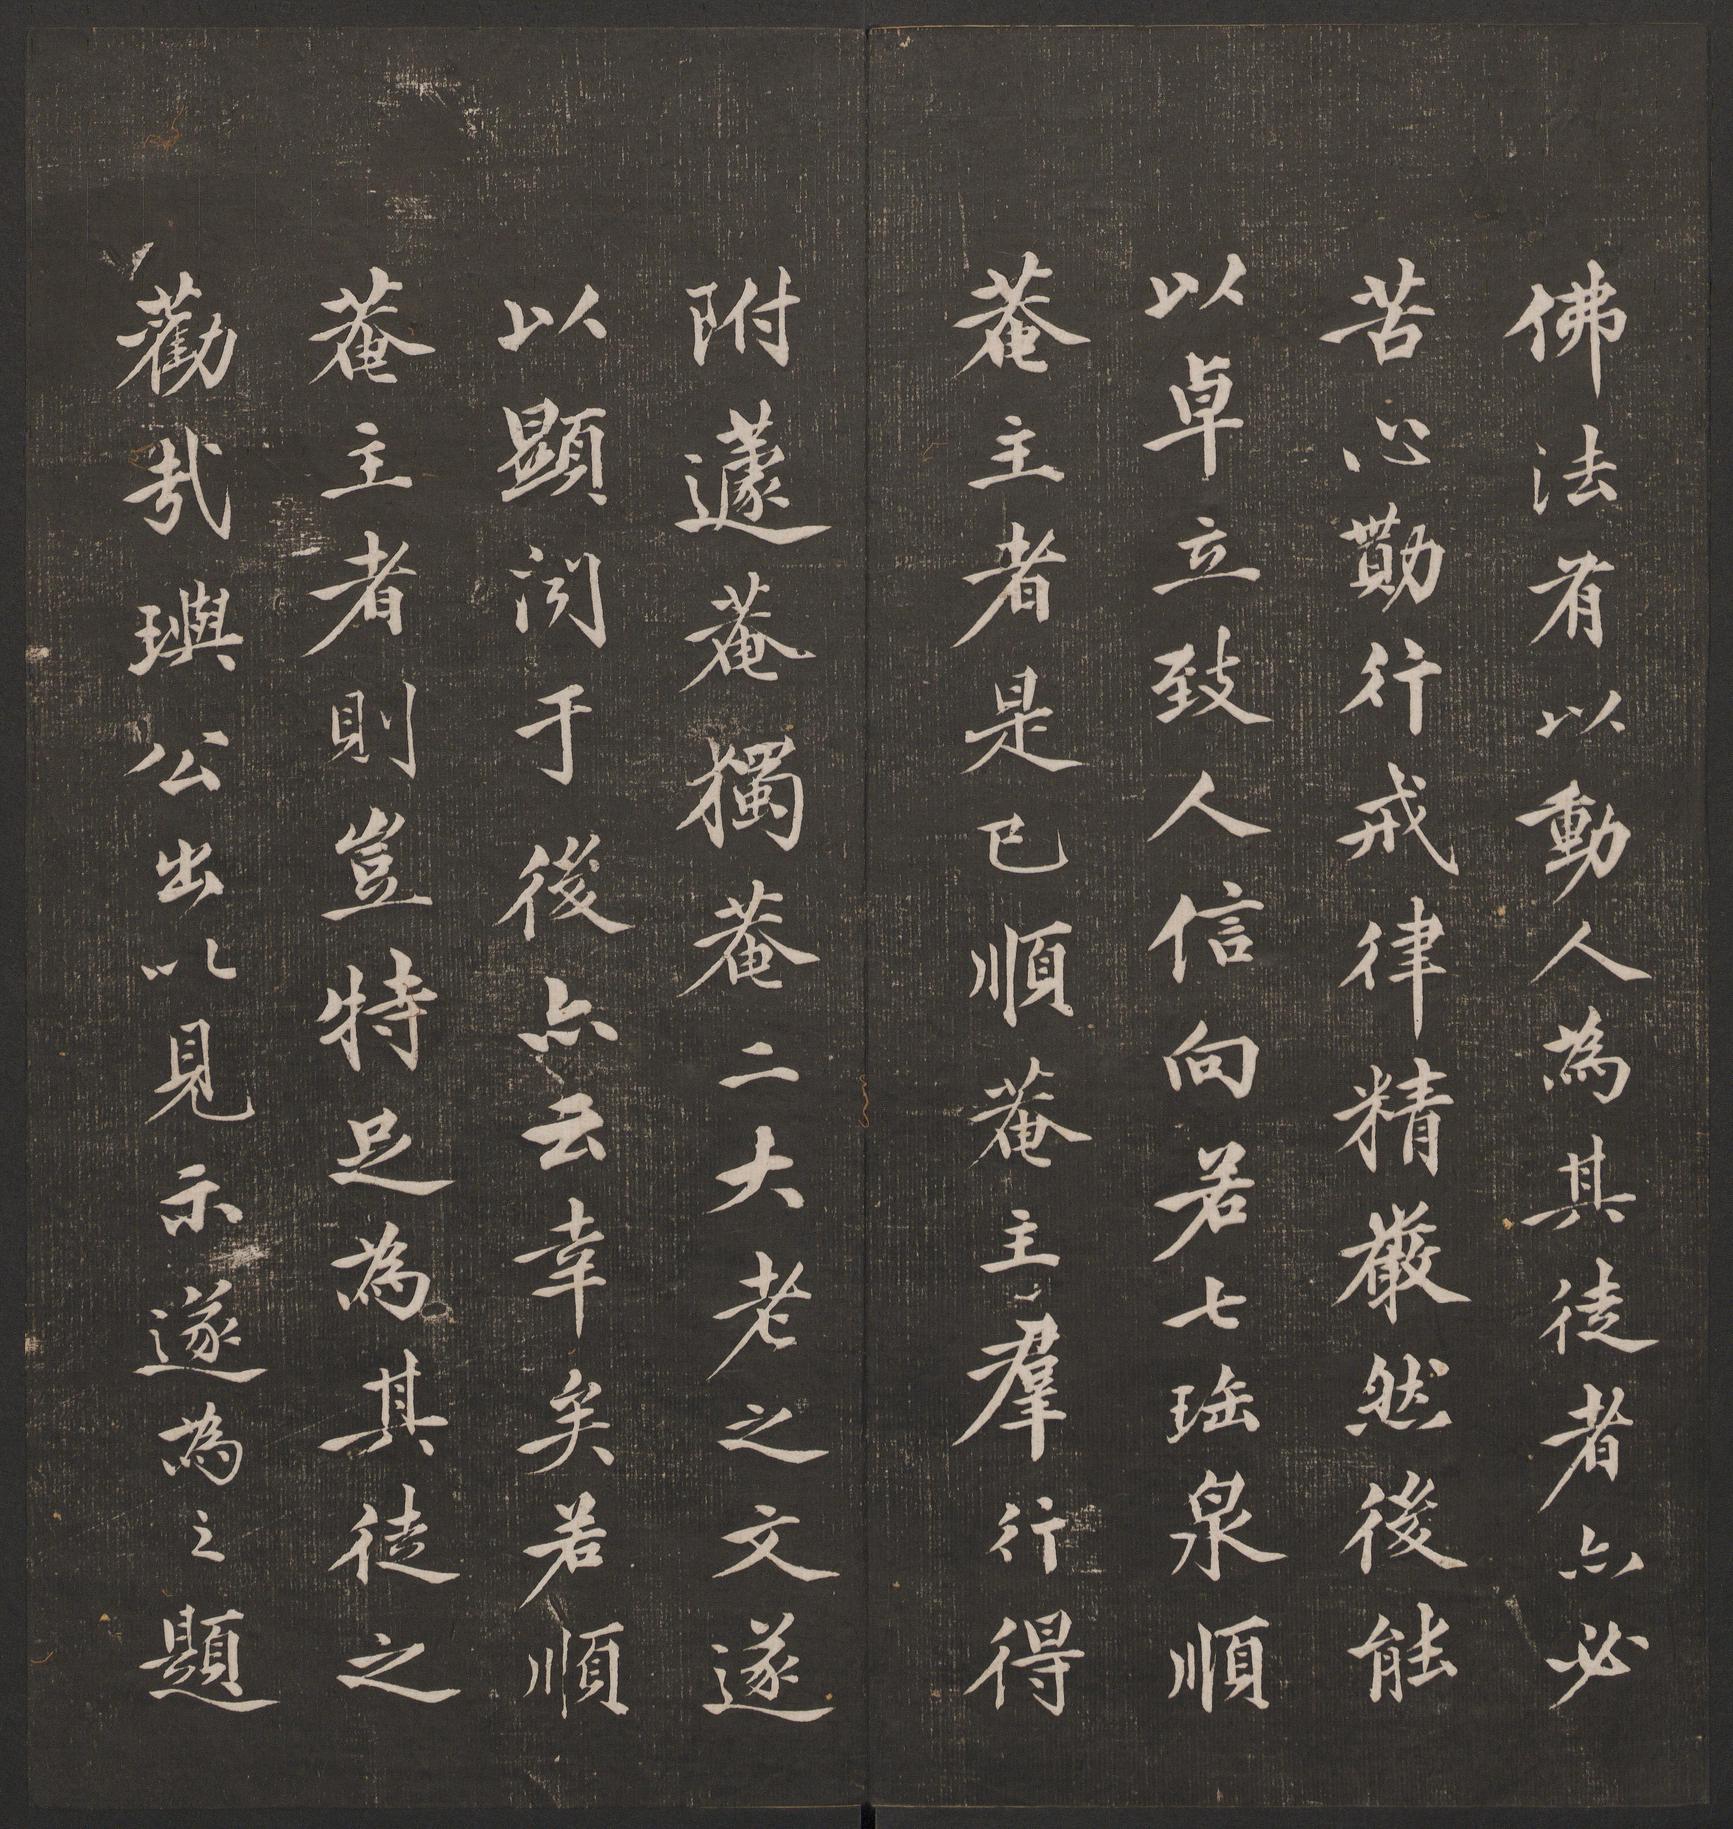 佛法有以動人為其徒者亦必
苦心勤行戒律精嚴然後能
以卓立致人信向若七瑤泉順
菴主者是已順菴主羣行得
附蘧菴獨菴二大老之文遂
以顯闻于後亦云幸矣若順
菴主者則豈特足為其徒之
勸哉璵公出以見示遂為之題